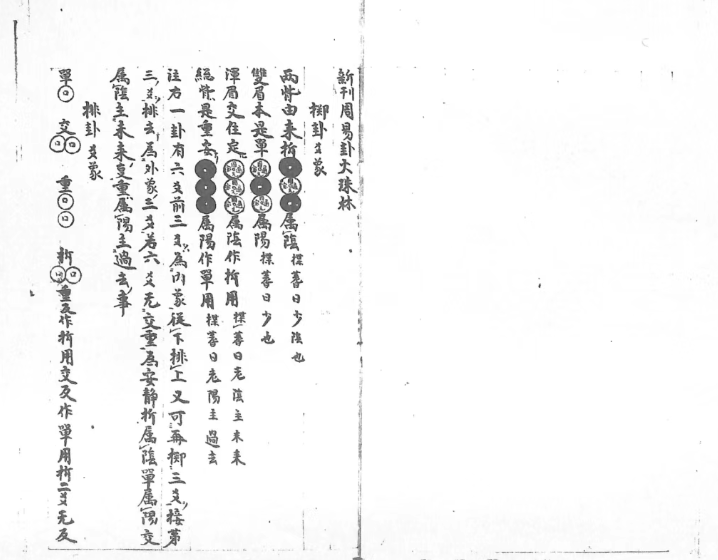 新刊周易卦火珠林
擲卦爻象
兩背由來拆 属陰 揲蓍曰少陰也
雙眉本是單 属陽 揲蓍曰少也
渾眉交住定 属陰作拆用 揲蓍曰老陰主未来
總背是重安 属陽作單用 揲蓍曰老陽主過去
注右一卦有六爻前三爻為内象従下排上又可再擲三爻接第
三爻排去為外象三爻若六爻无交重為安静拆属陰單属陽交
属陰主未来重属陽主過去事
排卦爻象
單 交 重 拆 重反作拆用交反作單用拆二爻无反